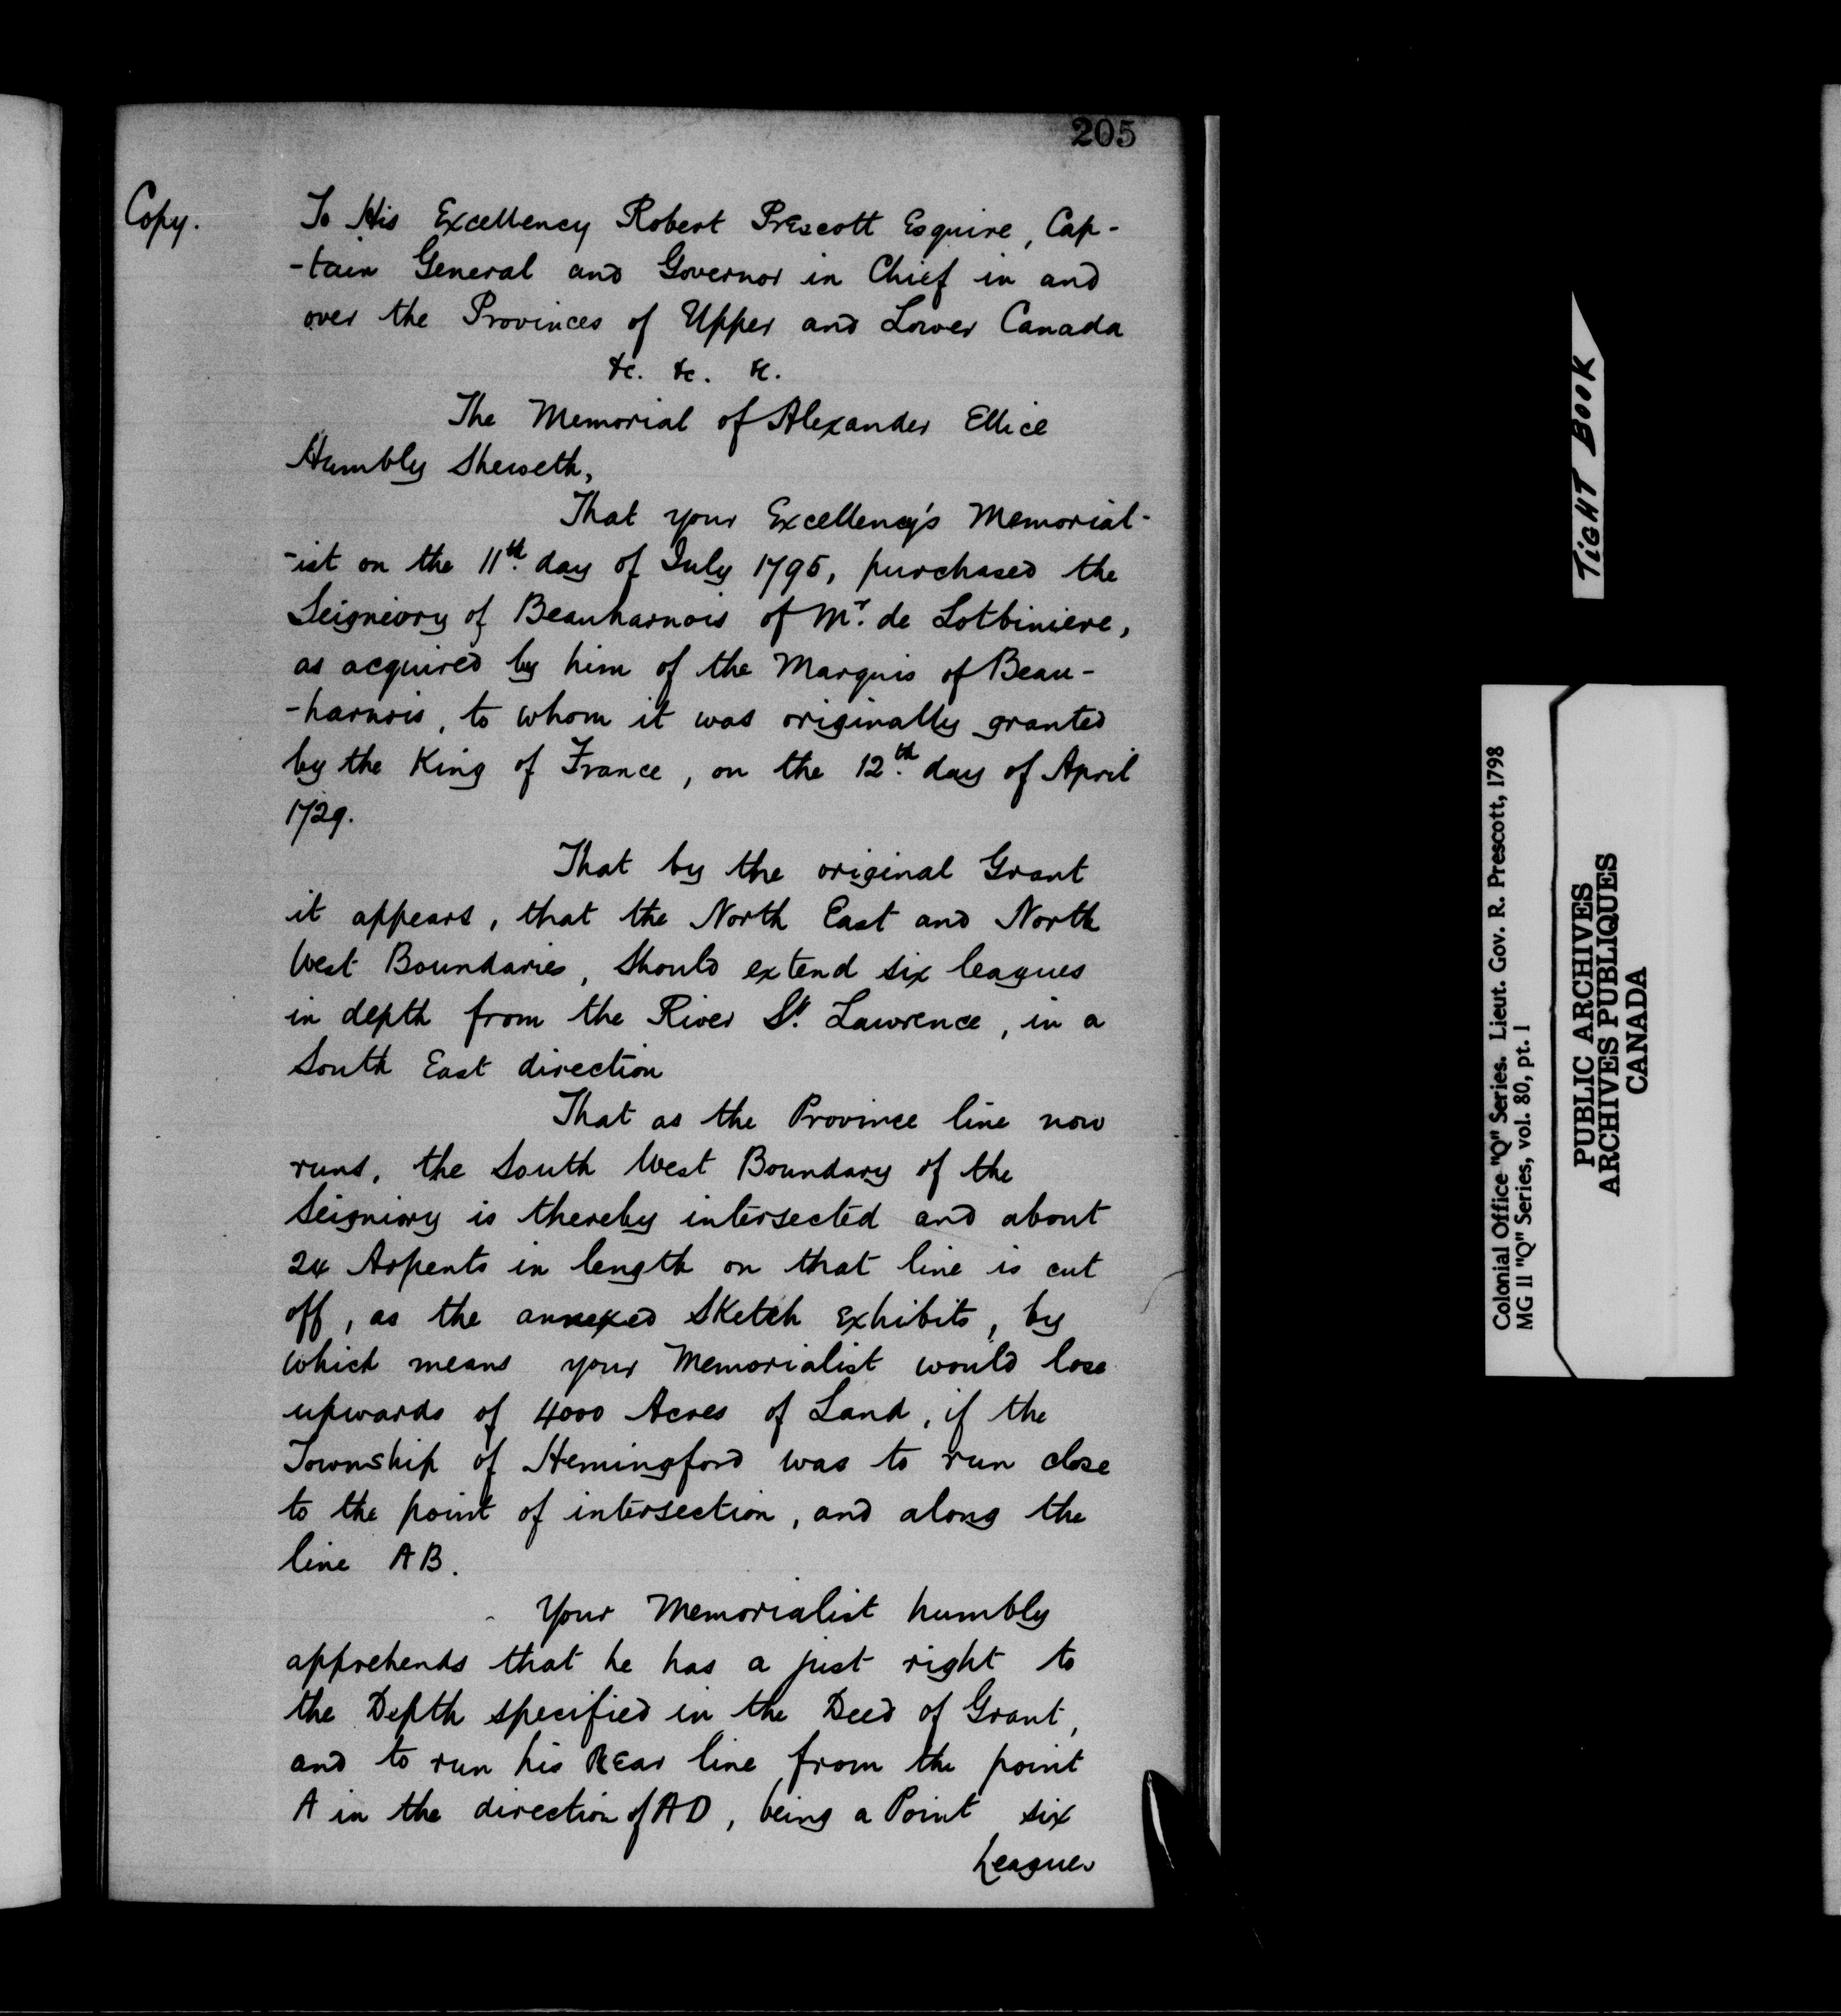 205
Copy.
To His Excellency Robert Prescott Esquire, Cap-
-tain General and Governor in Chief in and
over the Provinces of Upper and Lower Canada
&c. &c. &c.
The Memorial of Alexander Ellice
Humbly Sheweth,
That your Excellency's Memorial-
-ist on the 11th. day of July 1795, purchased the
Seigniory of Beauharnois of Mr. de Lotbiniere,
as acquired by him of the Marquis of Beau-
-harnois, to whom it was originally granted
by the King of France, on the 12th. day of April
1729.
That by the original Grant
it appears, that the North East and North
West Boundaries, should extend six leagues
in depth from the River St. Lawrence, in a
South East direction
That as the Province line now
runs, the South West Boundary of the
Seigniory is thereby intersected and about
24 Arpents in length on that line is cut
off, as the annexed Sketch exhibits, by
which means your Memorialist would lose
upwards of 4000 Acres of Land, if the
Township of Hemingford was to run close
to the point of intersection, and along the
line AB.
Your Memorialist humbly
apprehends that he has a just right to
the Depth specified in the Deed of Grant,
and to run his Rear line from the point
A in the direction of AD, being a Point six
Leagues
TIGHT BOOK
Colonial Office "Q" Series. Lieut. Gov. R. Prescott, 1798
MG 11 "Q" Series, vol. 80, pt. 1
PUBLIC ARCHIVES
ARCHIVES PUBLIQUES
CANADA